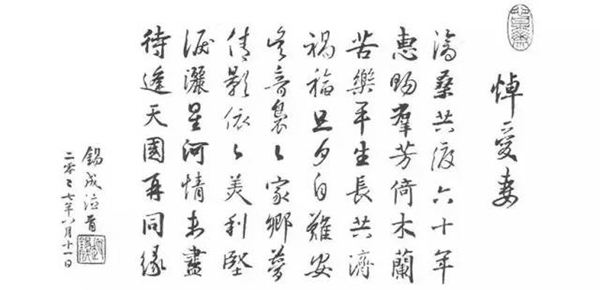 悼愛妻
滄桑共渡六十年
惠賜羣芳倚木蘭
苦樂平生長共濟
禍福旦夕自難安
吳音裊〻家鄉夢
倩影依〻美利堅
淚灑星河情未盡
待逢天國再同緣
錫成泣首
二零〻七年八月十一日